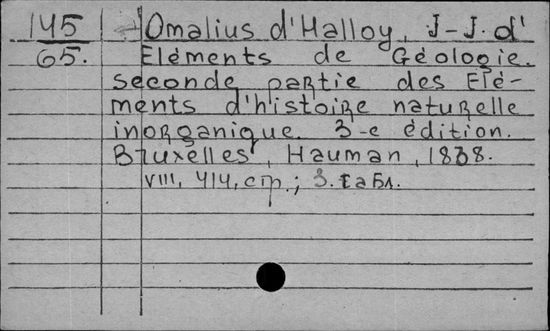 145 Omalius d'Halloy, J-J. d'
65. Eléments de Géologie.
seconde partie des Elé-
ments d'histoire naturelle
inorganique. 3-e édition.
Bruxelles, Hauman, 1838.
VIII, 414, стр.; 3. табл.